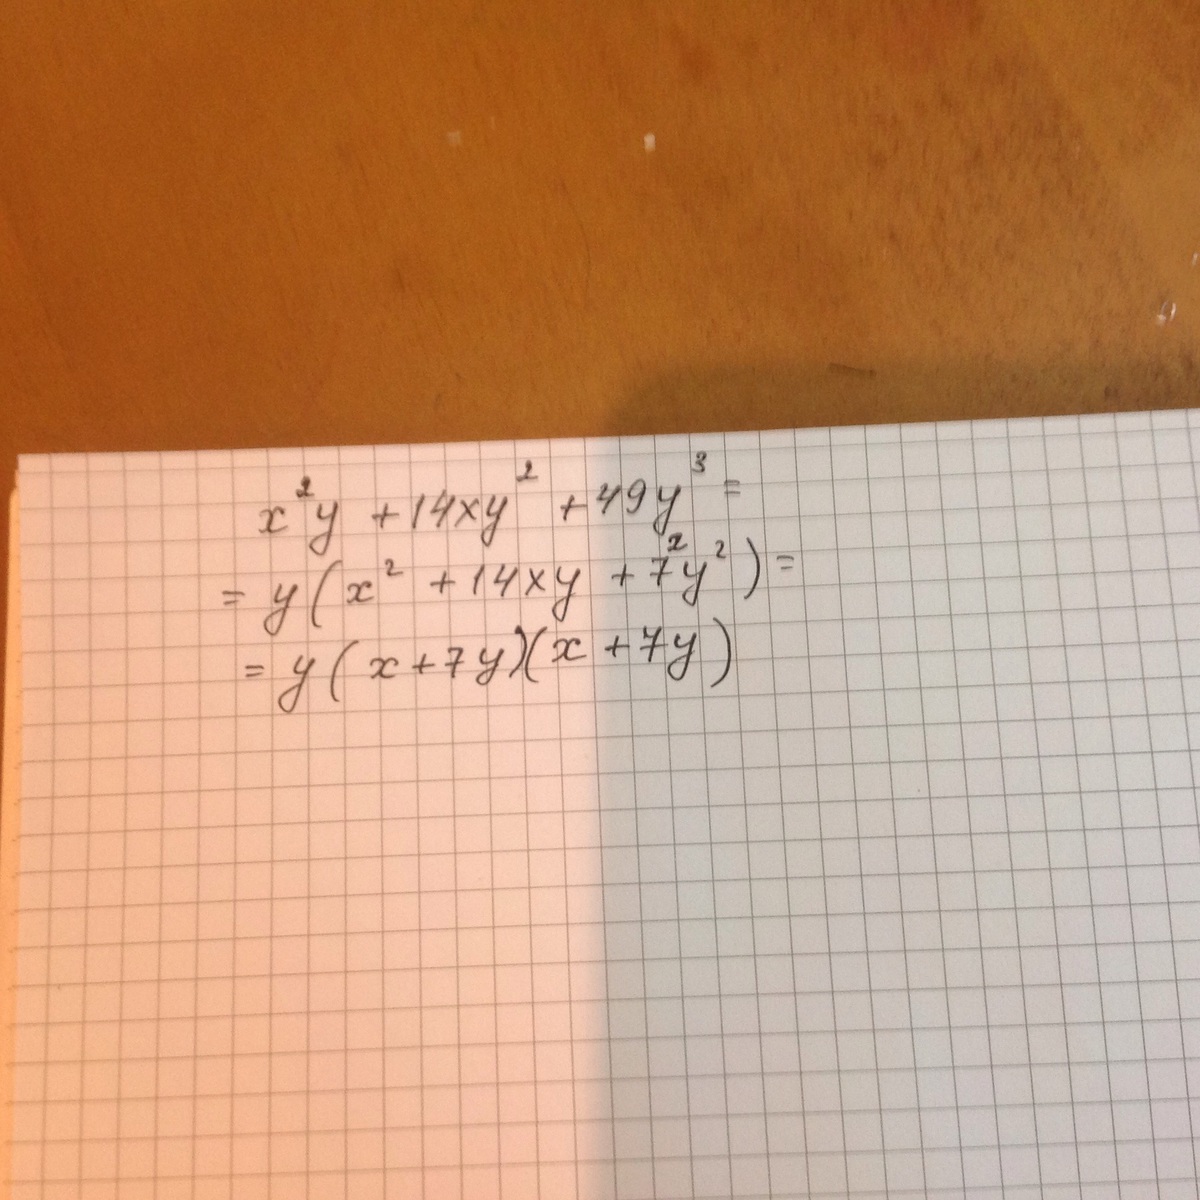 x²y + 14xy² + 49y³ =
= y(x² + 14xy + 7²y²) =
= y(x + 7y)(x + 7y)